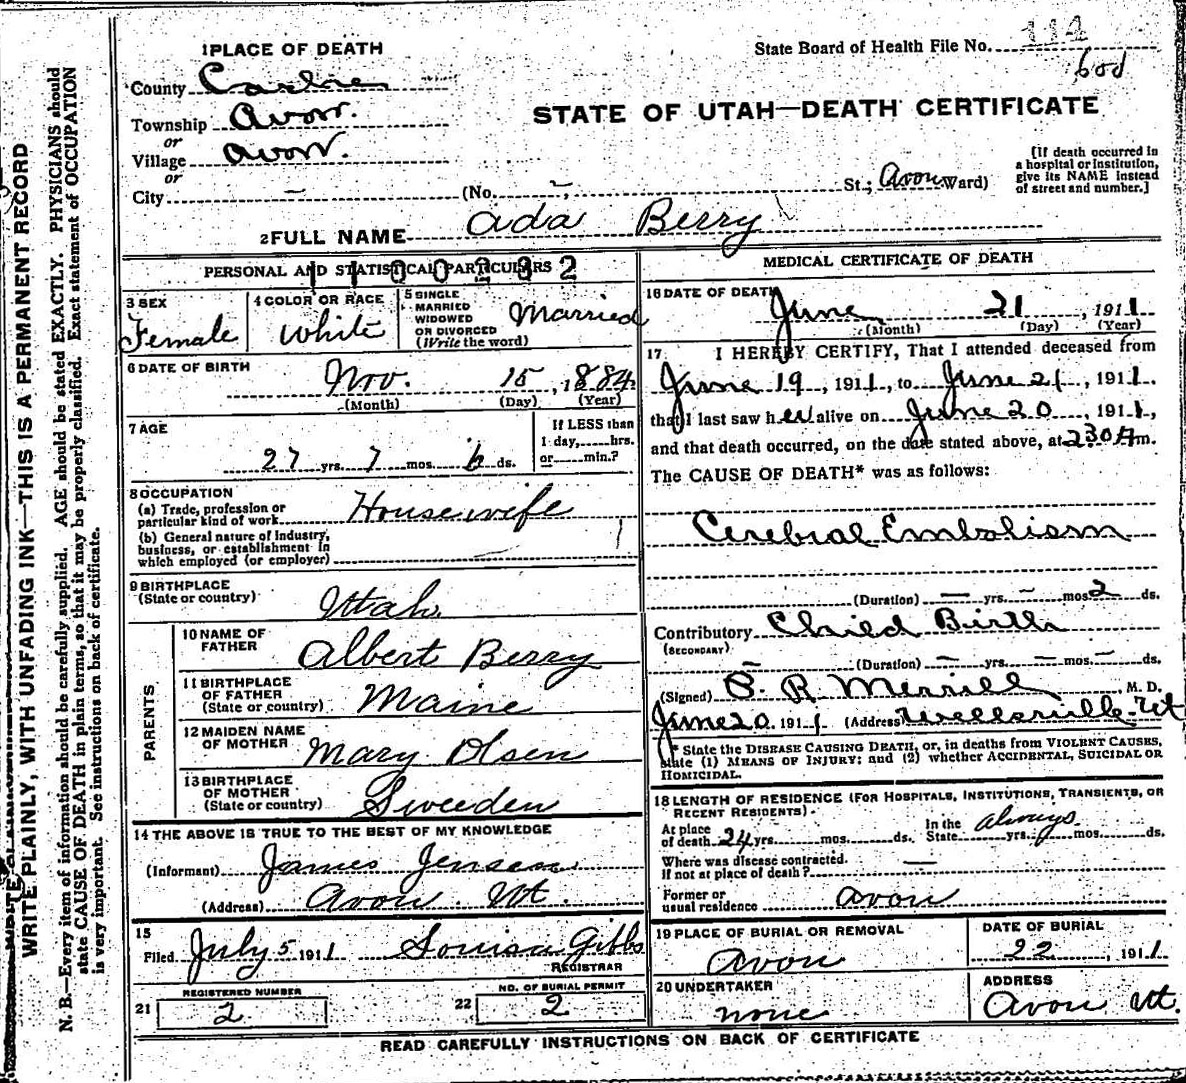 1 PLACE OF DEATH
State Board of Health File No. 112
County Cache
STATE OF UTAH—DEATH CERTIFICATE
Township Avon.
or
Village Avon.
or
City — (No. — St.; Avon Ward)
[If death occurred in
a hospital or institution,
give its NAME instead
of street and number.]
2 FULL NAME Ada Berry
PERSONAL AND STATISTICAL PARTICULARS
1100232
3 SEX
Female
4 COLOR OR RACE
White
5 SINGLE
MARRIED
WIDOWED
OR DIVORCED
(Write the word)
Married
6 DATE OF BIRTH
Nov. 15, 1884
(Month) (Day) (Year)
7 AGE
27 yrs. 7 mos. 6 ds.
If LESS than
1 day, hrs.
or min.?
8 OCCUPATION
(a) Trade, profession or
particular kind of work Housewife
(b) General nature of industry,
business, or establishment in
which employed (or employer) —
9 BIRTHPLACE
(State or country) Utah
PARENTS
10 NAME OF
FATHER Albert Berry
11 BIRTHPLACE
OF FATHER
(State or country) Maine
12 MAIDEN NAME
OF MOTHER Mary Olsen
13 BIRTHPLACE
OF MOTHER
(State or country) Sweeden
14 THE ABOVE IS TRUE TO THE BEST OF MY KNOWLEDGE
(Informant) James Jensen
(Address) Avon Ut.
15
Filed July 5 1911 Louisa Gibbs
REGISTRAR
21 REGISTERED NUMBER
2
22 NO. OF BURIAL PERMIT
2
MEDICAL CERTIFICATE OF DEATH
16 DATE OF DEATH
June 21, 1911
(Month) (Day) (Year)
17 I HEREBY CERTIFY, That I attended deceased from
June 19, 1911, to June 21, 1911.
that I last saw her alive on June 20, 1911,
and that death occurred, on the date stated above, at 230 A m.
The CAUSE OF DEATH* was as follows:
Cerebral Embolism
(Duration) — yrs. — mos. 2 ds.
Contributory Child Birth
(SECONDARY)
— (Duration) — yrs. — mos. — ds.
(Signed) Merrill, M. D.
June 20 1911 (Address) Wellsville Ut
* State the DISEASE CAUSING DEATH, or, in deaths from VIOLENT CAUSES,
state (1) MEANS OF INJURY; and (2) whether ACCIDENTAL, SUICIDAL or
HOMICIDAL.
18 LENGTH OF RESIDENCE (FOR HOSPITALS, INSTITUTIONS, TRANSIENTS, OR
RECENT RESIDENTS).
At place
of death 24 yrs. mos. ds. In the
State always yrs. mos. ds.
Where was disease contracted.
If not at place of death? —
Former or
usual residence Avon
19 PLACE OF BURIAL OR REMOVAL
Avon
DATE OF BURIAL
22, 1911
20 UNDERTAKER
none
ADDRESS
Avon Ut.
READ CAREFULLY INSTRUCTIONS ON BACK OF CERTIFICATE
WRITE PLAINLY, WITH UNFADING INK—THIS IS A PERMANENT RECORD
N. B.—Every item of information should be carefully supplied. AGE should be stated EXACTLY. PHYSICIANS should
state CAUSE OF DEATH in plain terms, so that it may be properly classified. Exact statement of OCCUPATION
is very important. See instructions on back of certificate.